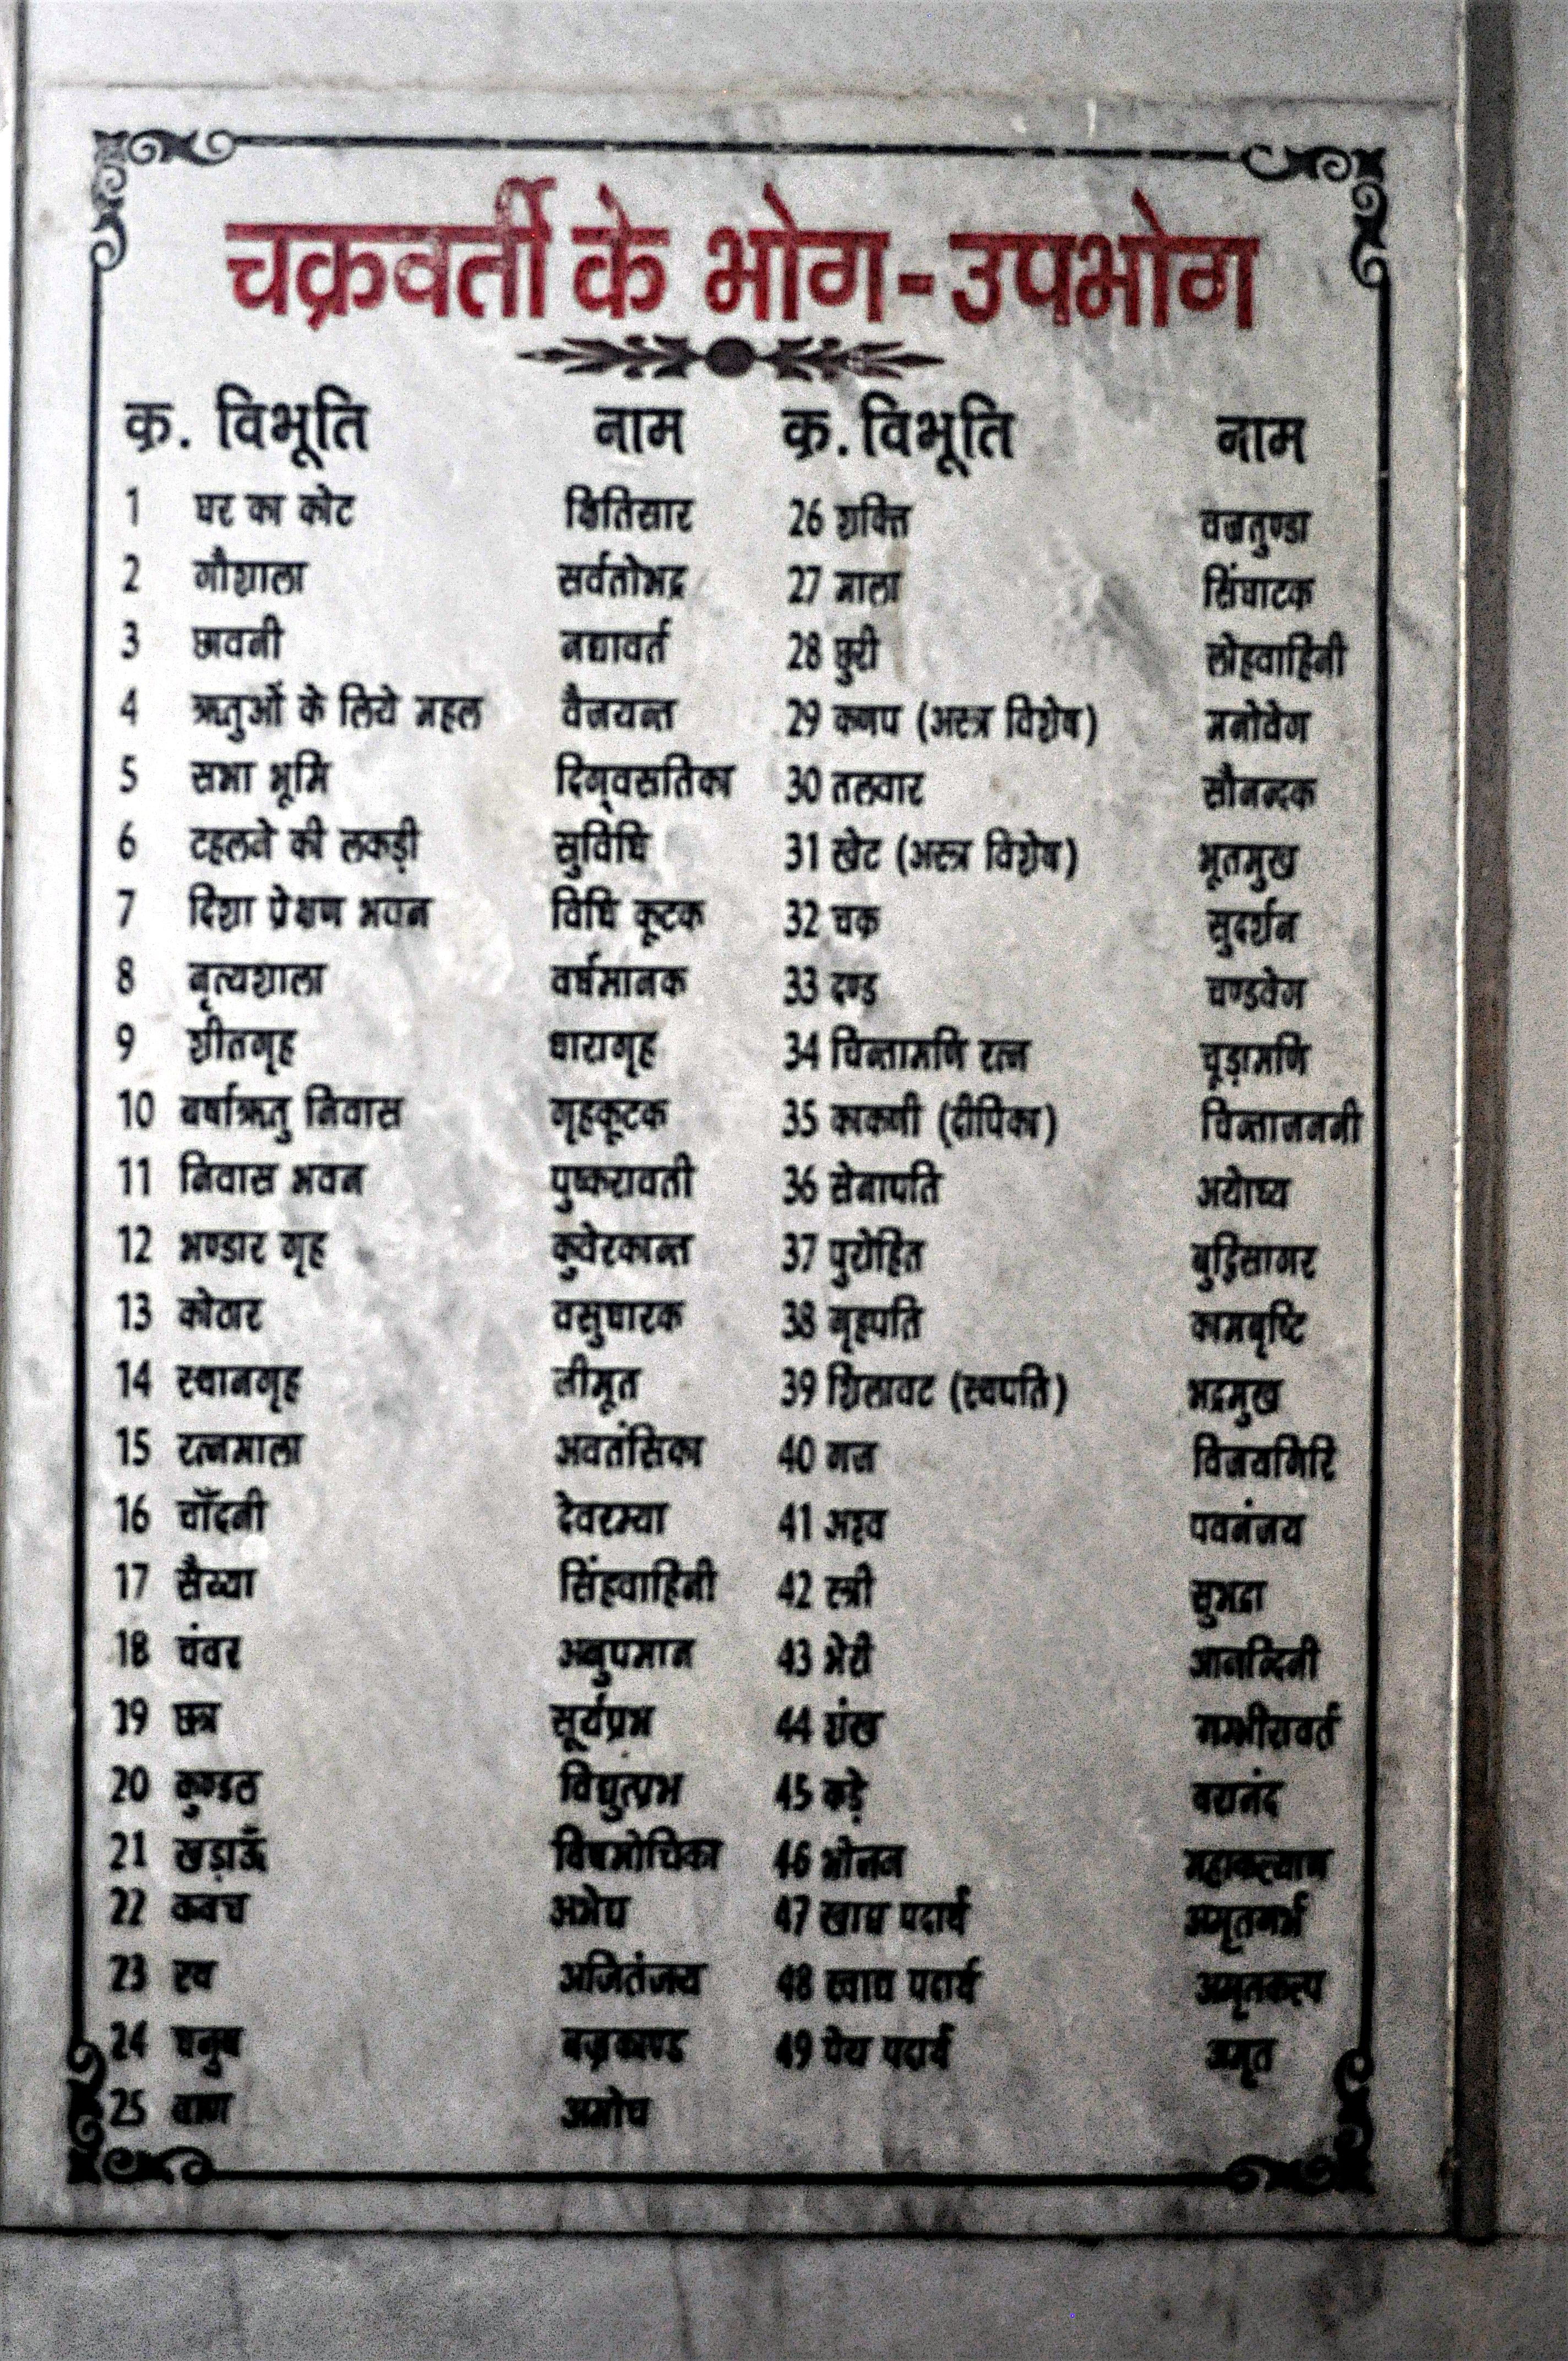 चक्रवर्ती के भोग-उपभोग
क्र. विभूति नाम क्र. विभूति नाम
1 घर का कोट क्षितिसार 26 शक्ति वज्रतुण्डा
2 गौशाला सर्वतोभद्र 27 माला सिंघाटक
3 छावनी नद्यावर्त 28 छुरी लोहवाहिनी
4 ऋतुओं के लिये महल वैजयन्त 29 कणप (अस्त्र विशेष) मनोवेग
5 सभा भूमि दिग्वसतिका 30 तलवार सौनन्दक
6 टहलने की लकड़ी सुविधि 31 खेट (अस्त्र विशेष) भूतमुख
7 दिशा प्रेक्षण भवन विधि कूटक 32 चक्र सुदर्शन
8 नृत्यशाला वर्धमानक 33 दण्ड चण्डवेग
9 शीतगृह धारागृह 34 चिन्तामणि रत्न चूड़ामणि
10 बर्षाऋतु निवास गृहकूटक 35 काकणी (दीपिका) चिन्ताजननी
11 निवास भवन पुष्करावती 36 सेनापति अयोध्य
12 भण्डार गृह कुवेरकान्त 37 पुरोहित बुद्धिसागर
13 कोठार वसुधारक 38 गृहपति कामबृष्टि
14 स्थानगृह जीमूत 39 शिलावट (स्थपति) भद्रमुख
15 रत्नमाला अवतंसिका 40 गज विजयगिरि
16 चाँदनी देवरम्या 41 अश्व पवनंजय
17 सैय्या सिंहवाहिनी 42 स्त्री सुभद्रा
18 चंवर अनुपमान 43 भेरी आनन्दिनी
19 छत्र सूर्यप्रभ 44 शंख गम्भीरावर्त
20 कुण्डल विद्युत्प्रभ 45 कड़े
21 खड़ाऊँ विषमोचिका 46 भोजन महाकल्याण
22 कवच अभेद्य 47 खाद्य पदार्थ अमृतगर्भ
23 रथ अजितंजय 48 स्वाद्य पदार्थ अमृतकल्प
24 धनुष बज्रकाण्ड 49 पेय पदार्थ अमृत
25 वाण अमोघ